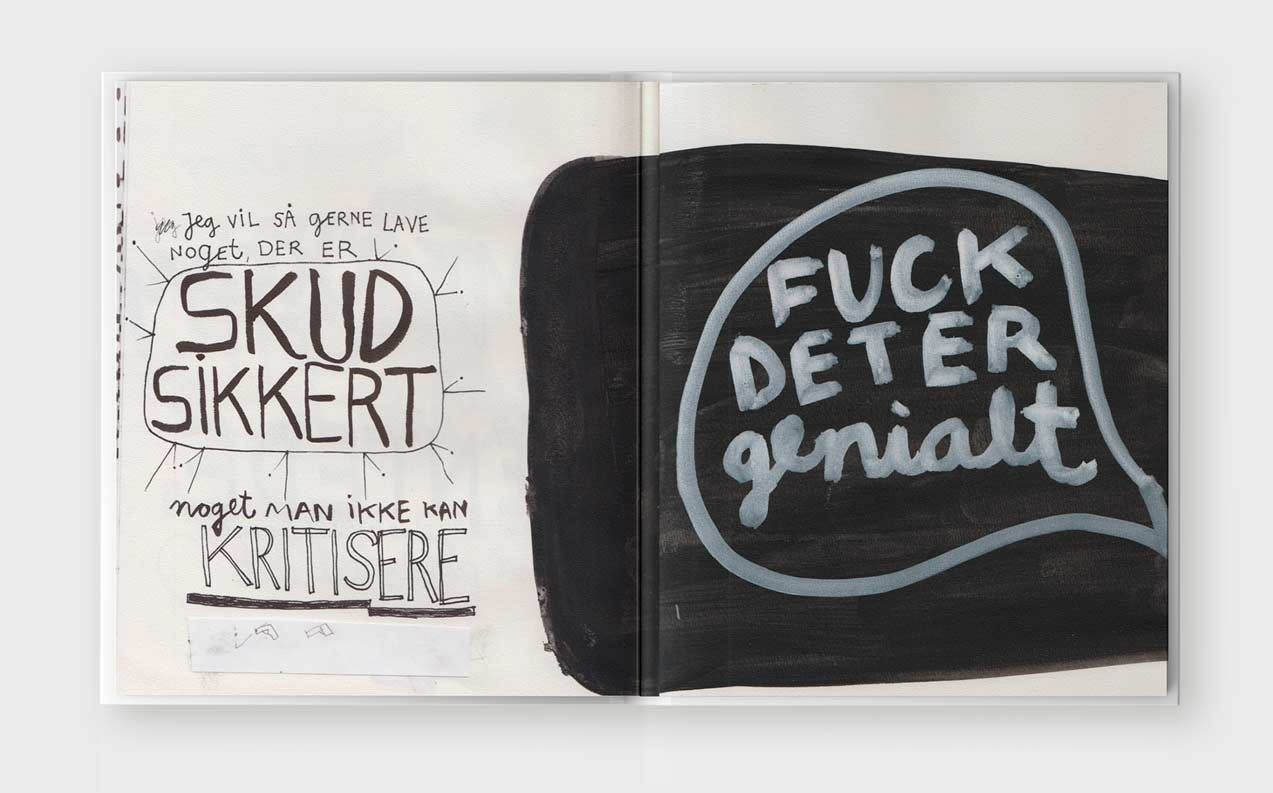 Jeg VIL SÅ gERNE LAVE
noget, DER ER
SKUD
SiKKERT
noget MAN iKKE KAN
KRITISERE
FUCK
DET ER
genialt